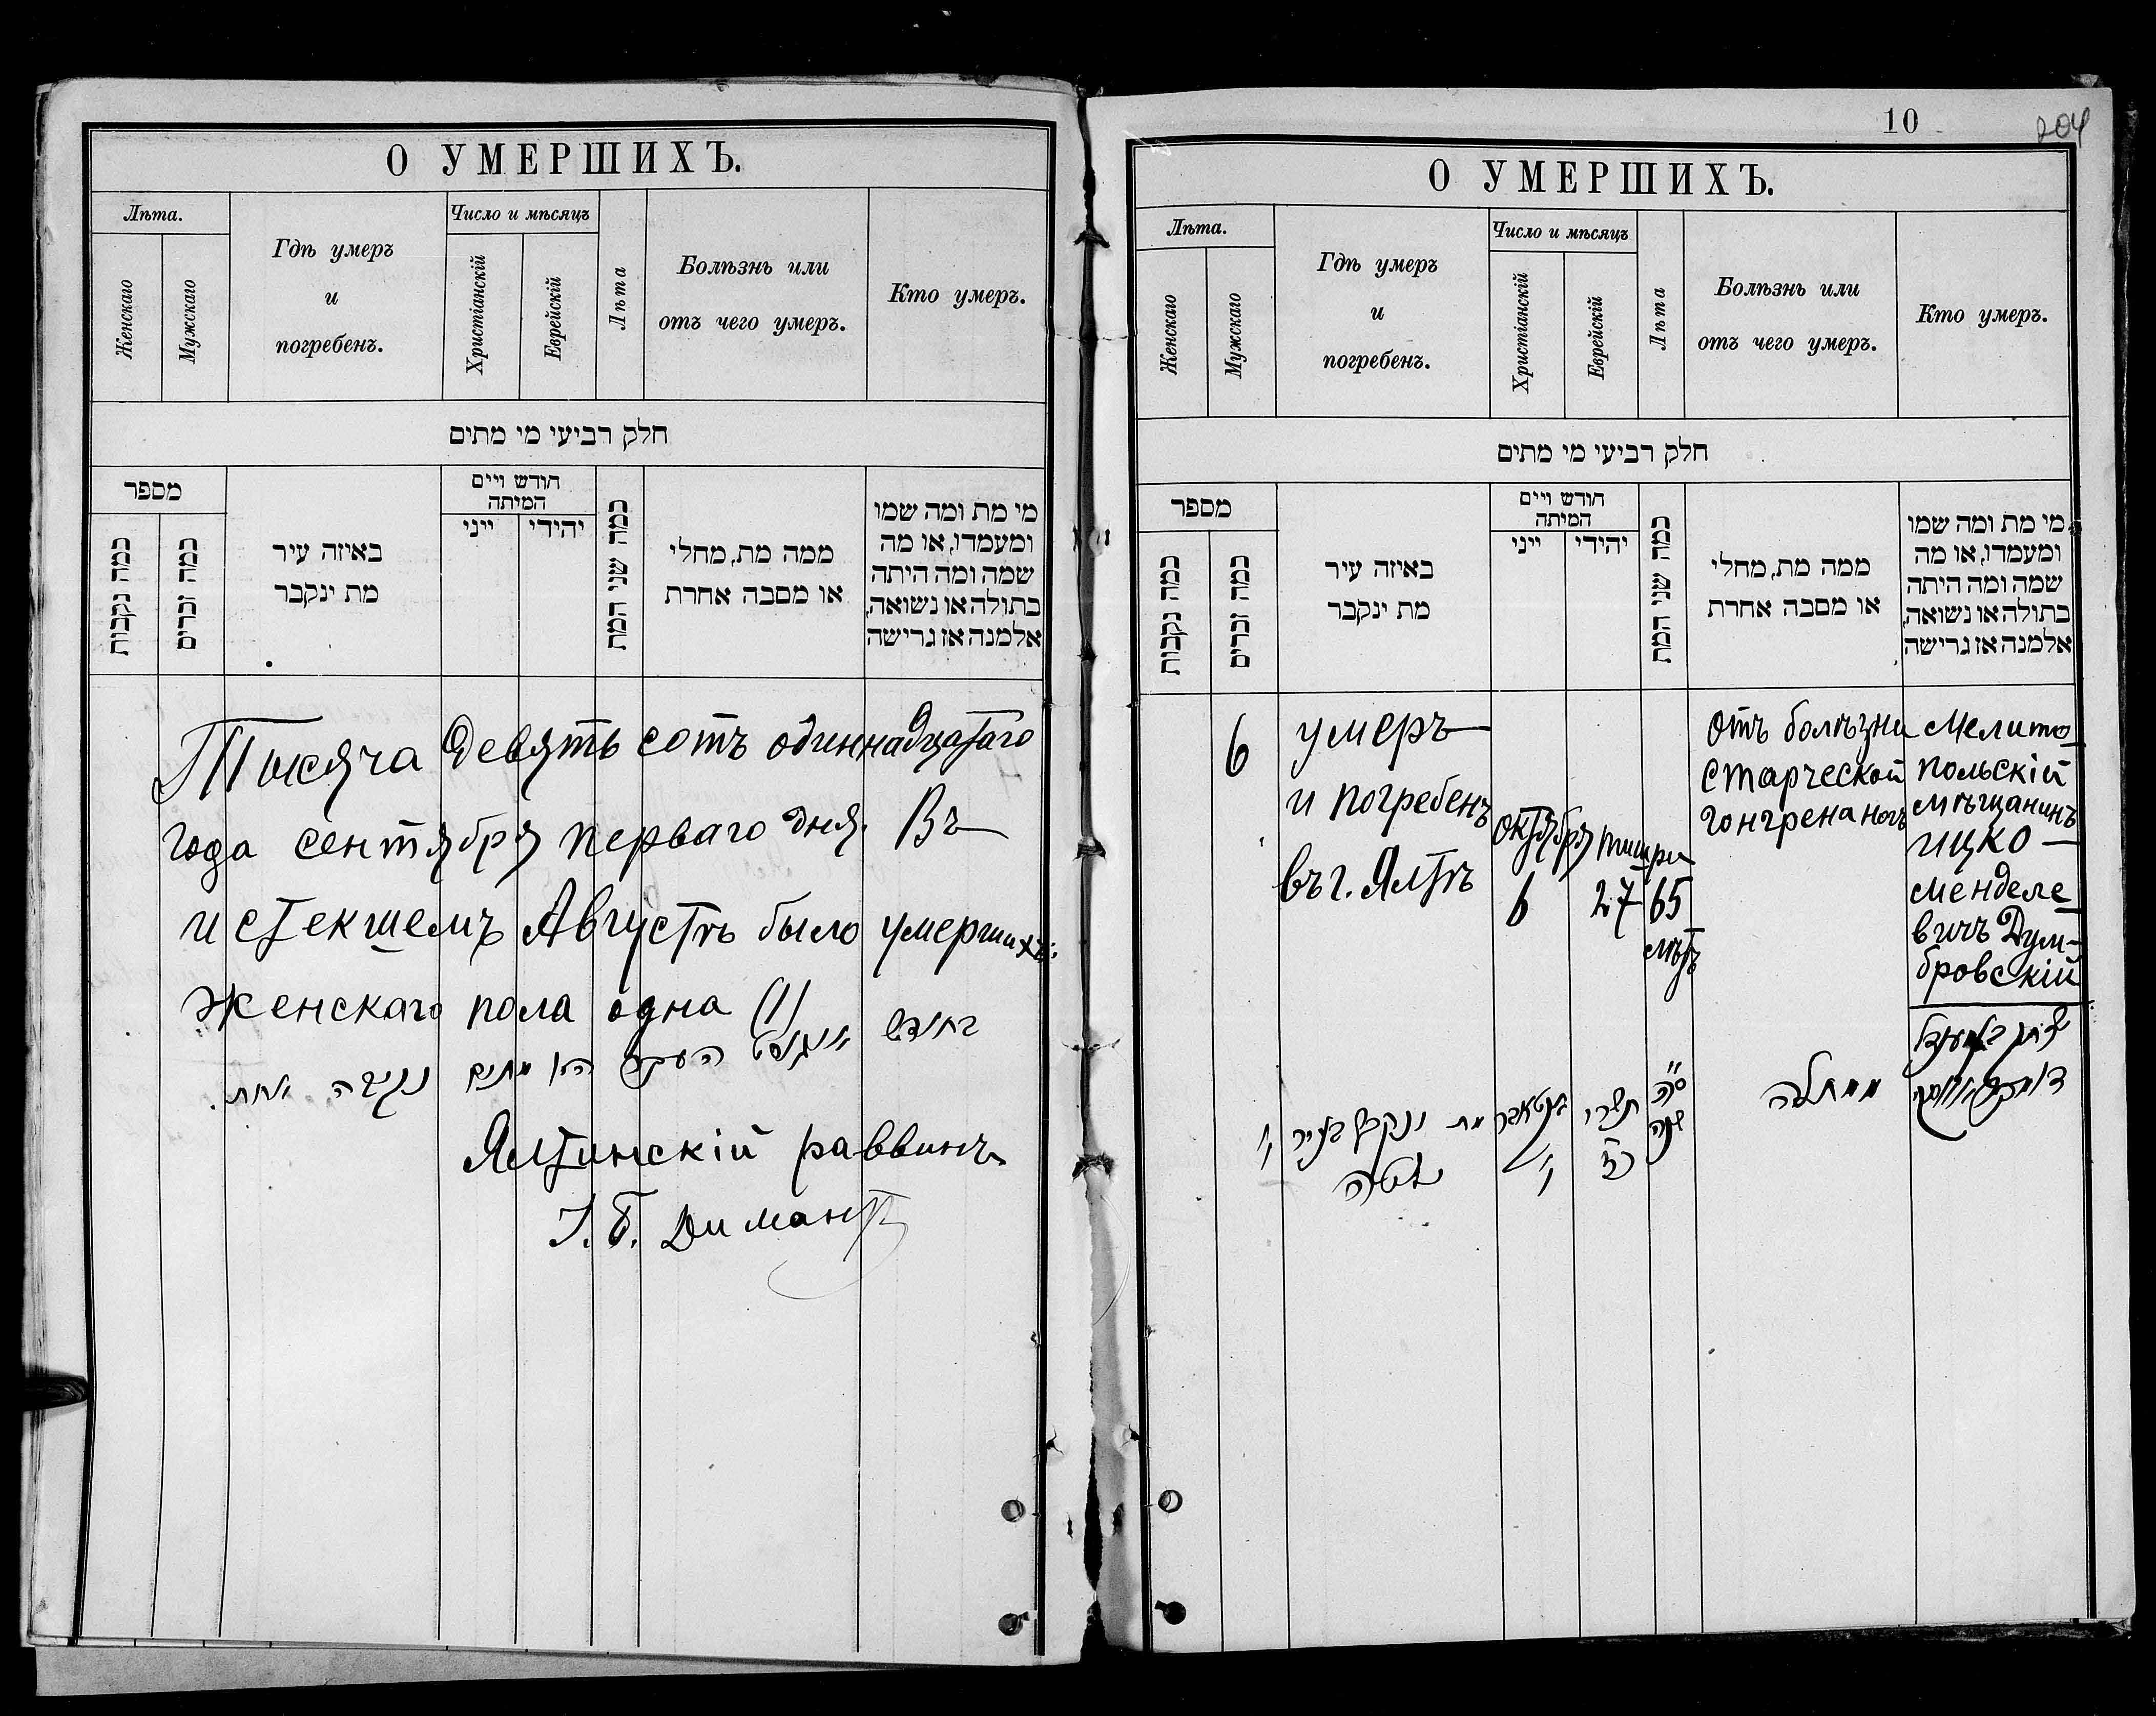 О УМЕРШИХЪ.
Лѣта.
Женскаго
Мужскаго
Гдѣ умеръ
и
погребенъ.
Число и мѣсяцъ
Христіанскій
Еврейскій
Лѣта
Болѣзнь или
отъ чего умеръ.
Кто умеръ.
חלק רביעי מי מתים
מספר
כמה נקבות
כמה זכרים
באיזה עיר
מת ינקבר
חודש ויים
המיתה
ייני
יהודי
כמה שני המת
ממה מת, מחלי
או מסבה אחרת
מי מת ומה שמו
ומעמדו, או מה
שמה ומה היתה
בתולה או נשואה,
אלמנה אז גרישה
Тысяча девять сотъ одиннадцатаго
года сентября перваго дня. Въ
истекшемъ Августѣ было умершихъ:
женскаго пола одна (1)
בחודש אויגוסט העבר היו מתים נקבה אחת.
Ялтинскій раввинъ
І. Б. Димантъ
10
204
О УМЕРШИХЪ.
Лѣта.
Женскаго
Мужскаго
Гдѣ умеръ
и
погребенъ.
Число и мѣсяцъ
Христіанскій
Еврейскій
Лѣта
Болѣзнь или
отъ чего умеръ.
Кто умеръ.
חלק רביעי מי מתים
מספר
כמה נקבות
כמה זכרים
באיזה עיר
מת ינקבר
חודש ויים
המיתה
ייני
יהודי
כמה שני המת
ממה מת, מחלי
או מסבה אחרת
מי מת ומה שמו
ומעמדו, או מה
שמה ומה היתה
בתולה או נשואה,
אלמנה אז גרישה
6
умеръ
и погребенъ
въ г. Ялтѣ
октября
6
тишри
27
65
лѣтъ
отъ болѣзни
старческой
гонгрена ногъ
Мелито-
польскій
мѣщанинъ
ицко
менделе-
вичъ Дум-
бровскій
ו
מת ונקבר בעיר
יאלטה
ו
תשרי
כז
סה
שנה
ממחלה